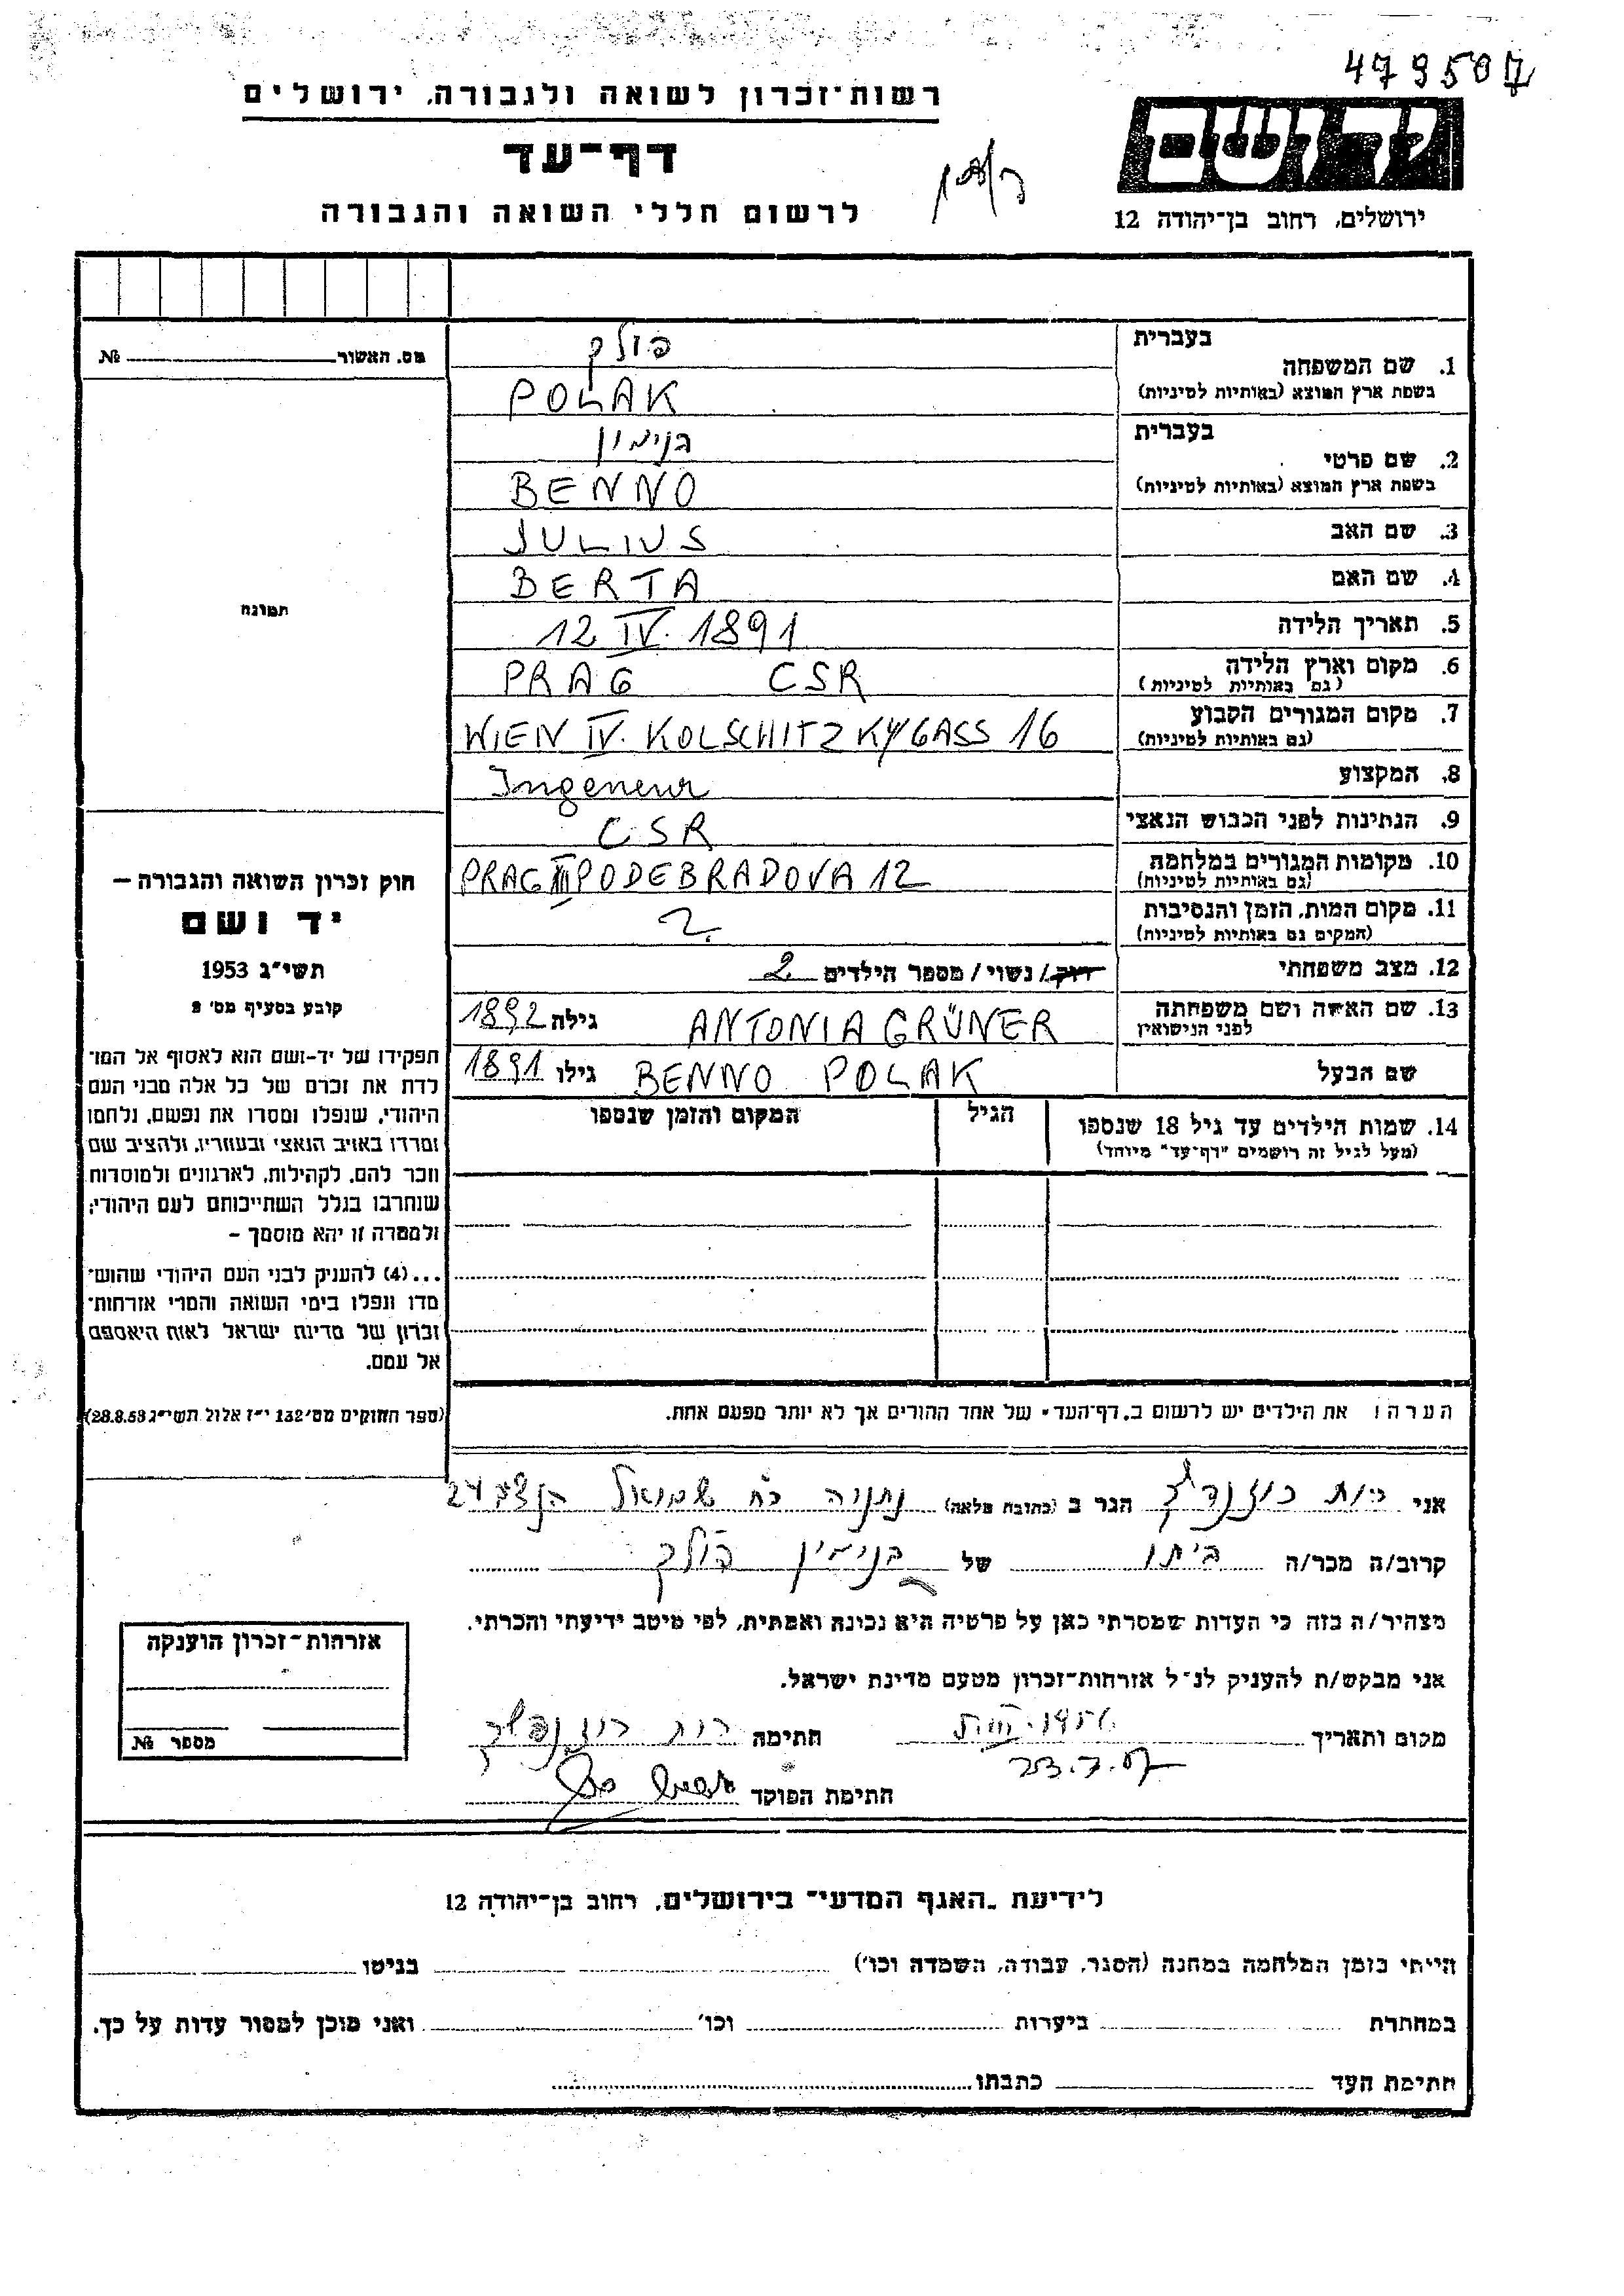 479507
רשות־זכרון לשואה ולגבורה, ירושלים
דף־עד
לרשום חללי השואה והגבורה
יד ושם
ירושלים, רחוב בן־יהודה 12
מס. האשור № 
תמונה
בעברית
1. שם המשפחה פולק
בשפת ארץ המוצא (באותיות לטיניות) POLAK
בעברית
2. שם פרטי בנימין
בשפת ארץ המוצא (באותיות לטיניות) BENNO
3. שם האב JULIUS
4. שם האם BERTA
5. תאריך הלידה 12 IV. 1891
6. מקום וארץ הלידה PRAG CSR
(גם באותיות לטיניות)
7. מקום המגורים הקבוע WIEN IV. KOLSCHITZKYGASS 16
(גם באותיות לטיניות)
8. המקצוע Ingeneur
9. הנתינות לפני הכבוש הנאצי CSR
10. מקומות המגורים במלחמה PRAG III PODEBRADOVA 12
(גם באותיות לטיניות)
11. מקום המות, הזמן והנסיבות ?
(המקום גם באותיות לטיניות)
12. מצב משפחתי רווק / נשוי / מספר הילדים 2
13. שם האשה ושם משפחתה ANTONIA GRÜNER גילה 1892
לפני הנישואין
שם הבעל BENNO POLAK גילו 1891
14. שמות הילדים עד גיל 18 שנספו הגיל המקום והזמן שנספו
(מעל לגיל זה רושמים "דף־עד" מיוחד)
הערה: את הילדים יש לרשום ב„דף־העד" של אחד ההורים אך לא יותר מפעם אחת.
חוק זכרון השואה והגבורה –
יד ושם
תשי"ג 1953
קובע בסעיף מס' 2
תפקידו של יד־ושם הוא לאסוף אל המו־
לדת את זכרם של כל אלה מבני העם
היהודי, שנפלו ומסרו את נפשם, נלחמו
ומרדו באויב הנאצי ובעוזריו, ולהציב שם
וזכר להם, לקהילות, לארגונים ולמוסדות
שנחרבו בגלל השתייכותם לעם היהודי;
ולמטרה זו יהא מוסמך –
...(4) להעניק לבני העם היהודי שהוש־
מדו ונפלו בימי השואה והמרי אזרחות־
זכרון של מדינת ישראל לאות היאספם
אל עמם.
(ספר החוקים מס' 132 י"ז אלול תשי"ג 28.8.53)
אני רות הגר ב (כתובת מלאה) נתניה שמואל
קרוב/ה מכר/ה ביתו של בנימין פולק
מצהיר/ה בזה כי העדות שמסרתי כאן על פרטיה היא נכונה ואמתית, לפי מיטב ידיעתי והכרתי.
אני מבקש/ת להעניק לנ"ל אזרחות־זכרון מטעם מדינת ישראל.
מקום ותאריך חתימה רות
חתימת הפוקד
אזרחות־זכרון הוענקה
מספר №
לידיעת „האגף המדעי" בירושלים, רחוב בן־יהודה 12
הייתי בזמן המלחמה במחנה (הסגר, עבודה, השמדה וכו') בגיטו
במחתרת ביערות וכו' ואני מוכן למסור עדות על כך.
חתימת העד כתבתו